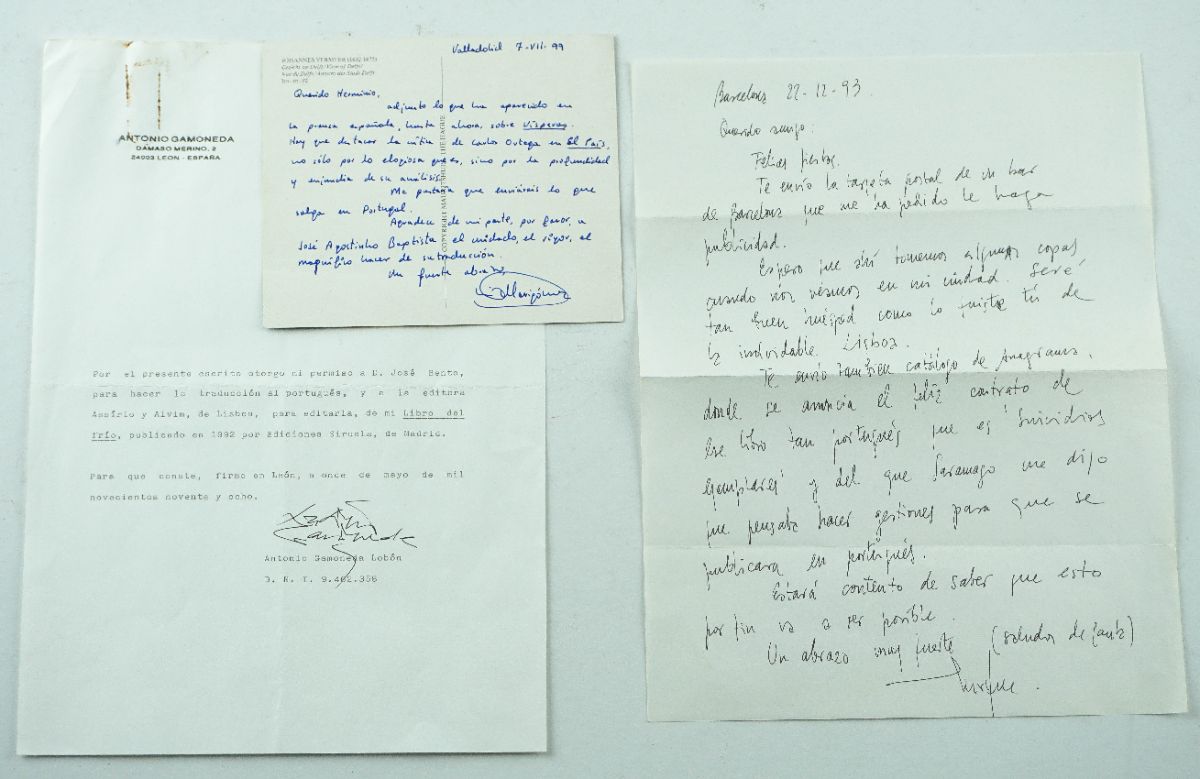 ANTONIO GAMONEDA
DAMASO MERINO, 2
24003 LEON - ESPAÑA
Por el presente escrito otorgo mi permiso a D. José Bento,
para hacer la traducción al portugués, y a la editora
Assírio y Alvim, de Lisboa, para editarla, de mi Libro del
frío, publicado en 1992 por Ediciones Siruela, de Madrid.
Para que conste, firmo en León, a once de mayo de mil
novecientos noventa y ocho.
Antonio Gamoneda Lobón
D. N. I. 9.462.356
JOHANNES VERMEER (1632-1675)
COPYRIGHT MAURITSHUIS THE HAGUE
Valladolid 7-VII-99
Querido Herminio,
adjunto lo que ha aparecido en
la prensa española, hasta ahora, sobre Vísperas.
Hay que destacar la crítica de Carlos Ortega en El País,
no sólo por lo elogiosa que es, sino por la profundidad
y enjundia de su análisis.
Me gustaría que enviarais lo que
salga en Portugal.
Agradece de mi parte, por favor, a
José Agostinho Baptista el cuidado, el rigor, el
magnífico hacer de su traducción.
Un fuerte abrazo
Barcelona 22-12-93.
Querido amigo:
Felices fiestas.
Te envío la tarjeta postal de un bar
de Barcelona que me ha pedido le haga
publicidad.
Espero que ahí tomemos algunas copas
cuando nos veamos en mi ciudad. Seré
tan buen huésped como lo fuiste tú de
la inolvidable Lisboa.
Te envío también catálogo de Anagrama,
donde se anuncia el feliz contrato de
ese libro tan portugués que es Suicidios
ejemplares y del que Saramago me dijo
que pensaba hacer gestiones para que se
publicara en portugués.
Estará contento de saber que esto
por fin va a ser posible.
Un abrazo muy fuerte (saludos de Paula)
Enrique.